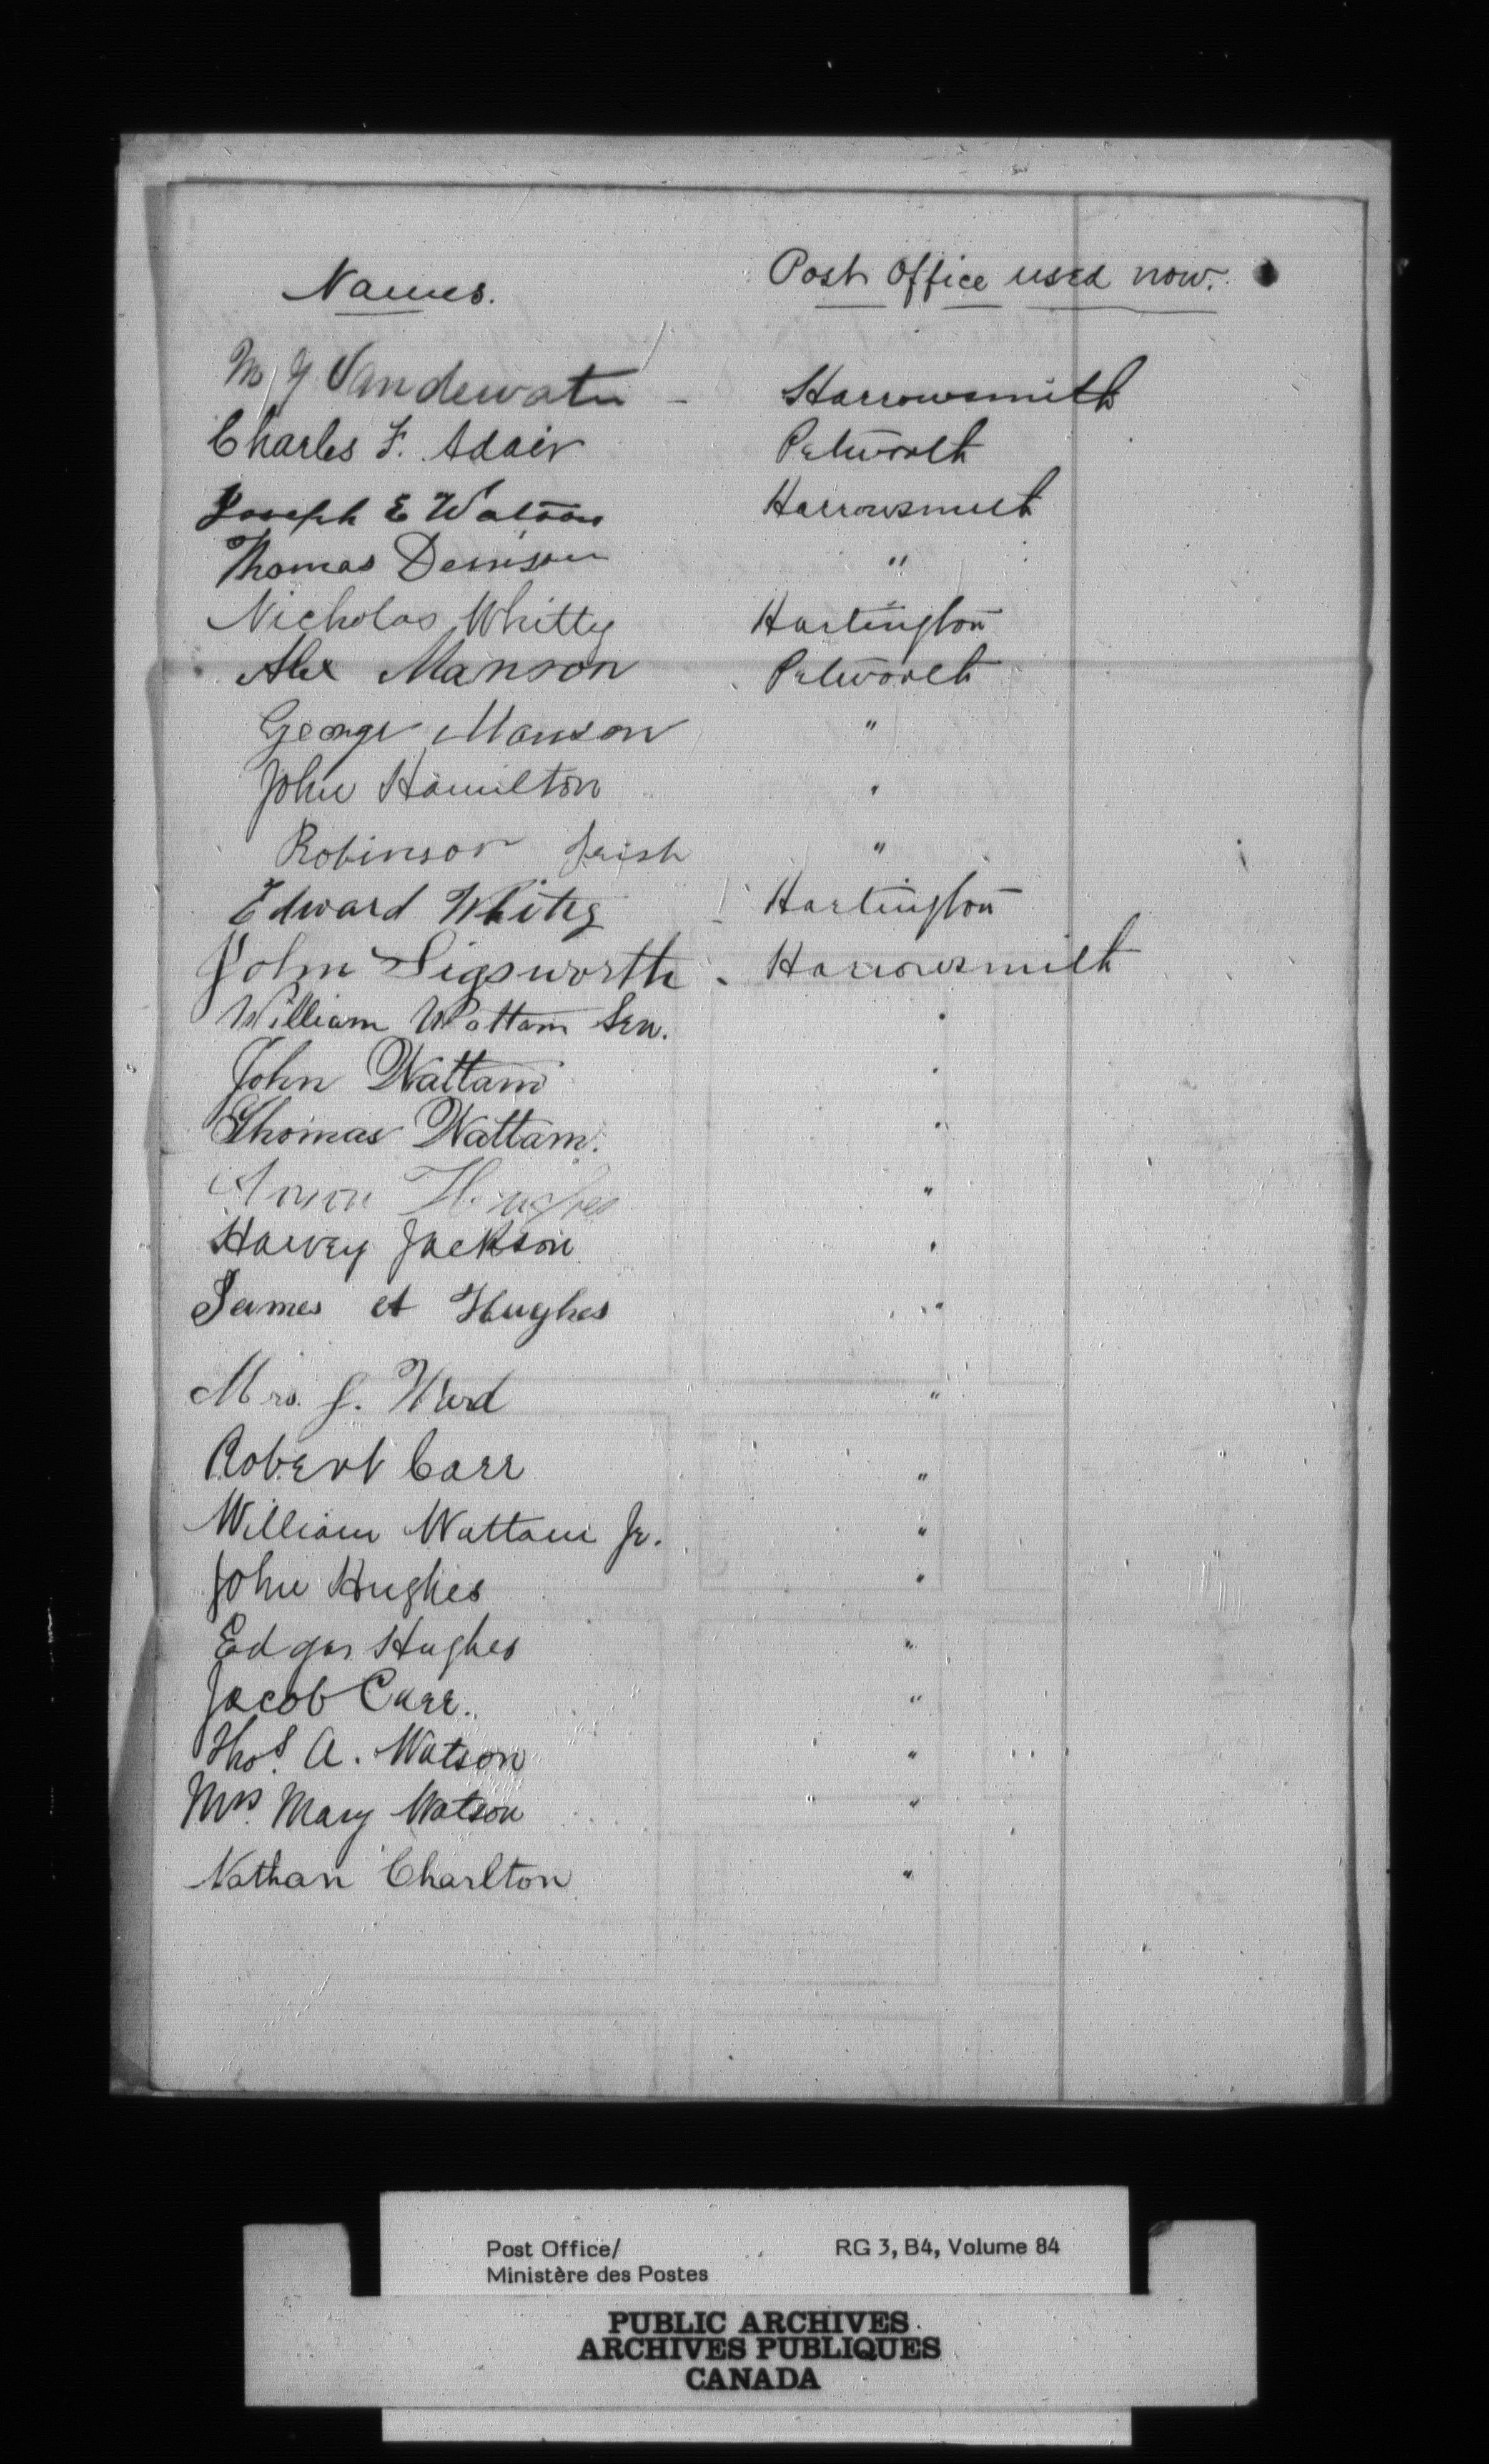 Names. Post Office used now.
M J Vandewater - Harrowsmith
Charles F. Adair Petworth
Joseph E Watson Harrowsmith
Thomas Denison "
Nicholas Whitty Hartington
Alex Manson Petworth
George Manson "
John Hamilton "
Robinson Irish "
Edward Whitty Hartington
John Sigsworth - Harrowsmith
William Wattam Sen. "
John Wattam "
Thomas Wattam. "
Hughes "
Harvey Jackson "
James A Hughes "
Mrs. J. Ward "
Robert Carr "
William Wattam Jr. "
John Hughes "
Edgar Hughes "
Jacob Carr. "
Thos. A. Watson "
Mrs. Mary Watson "
Nathan Charlton "
Post Office/ RG 3, B4, Volume 84
Ministère des Postes
PUBLIC ARCHIVES
ARCHIVES PUBLIQUES
CANADA